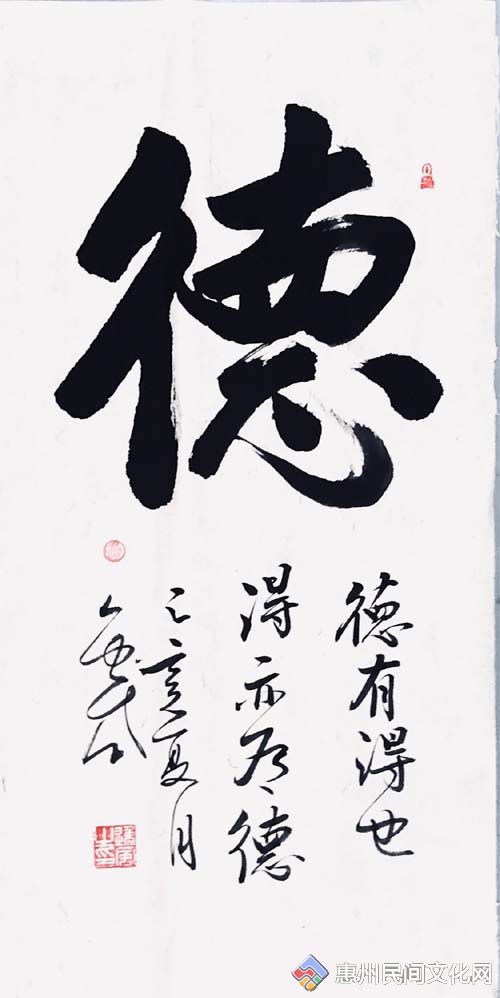 德
德有得也
得亦为德
己亥夏月
惠州民间文化网